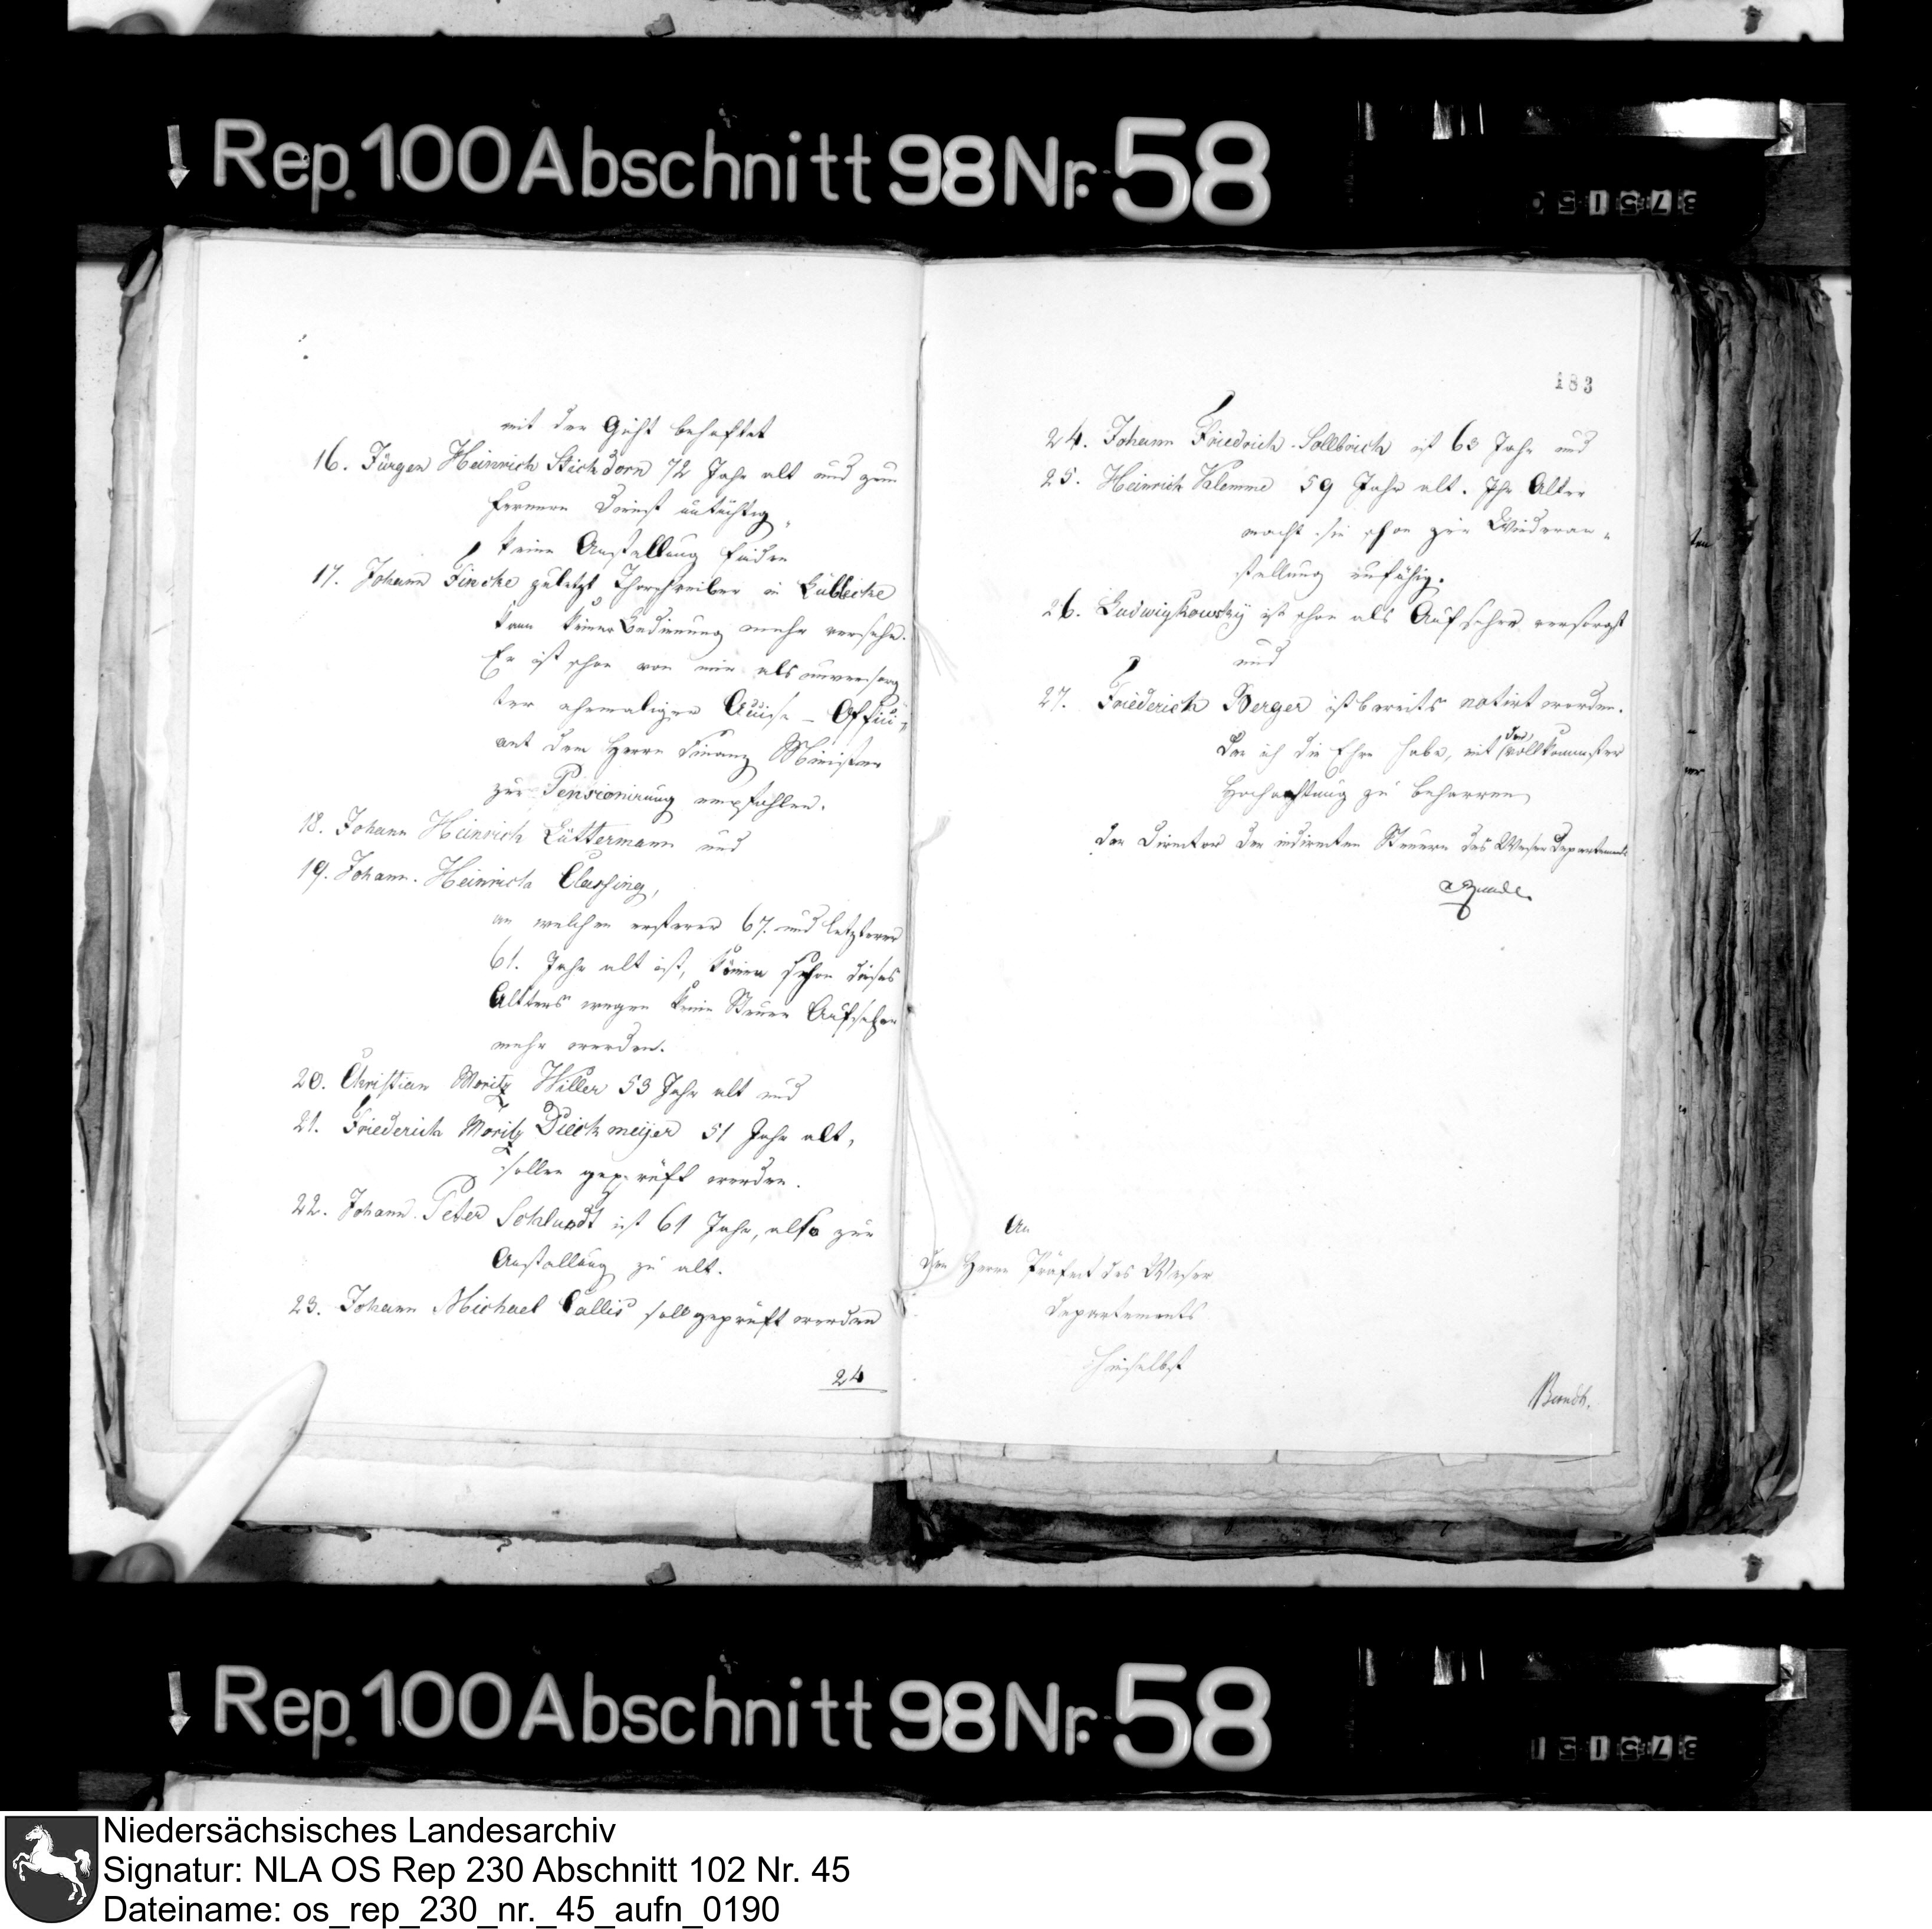 Rep. 100 Abschnitt 98 Nr. 58
mit der Gicht behaftet
16. Jürgen Heinrich Stichdorn 72 Jahr alt und zum
fernern Dienst untüchtig,
keine Anstellung finden
17. Johann Fincke zuletzt Thorschreiber in Lübbecke
kann keiner Bedienung mehr versehn.
Er ist schon von mir als unversorg
ter ehemaliger Accise-Offici-
ant dem Herrn Finanz Minister
zur Pensionirung empfohlen.
18. Johann Heinrich Lüttermann und
19. Johann Heinrich Clasfing,
von welchen ersterer 67. und letzterer
61. Jahr alt ist, können schon dieses
Alters wegen keine Steuer Aufseher
mehr werden.
20. Christian Moritz Willer 53 Jahr alt und
21. Friederich Moritz Dieckmeijer 51 Jahr alt,
sollen geprüft werden.
22. Johann Peter Schlundt ist 61 Jahr, also zur
Anstellung zu alt.
23. Johann Michael Callis soll geprüft werden
24
183
24. Johann Friedrich Sollbrich ist 63 Jahr und
25. Heinrich Klemme 59 Jahr alt. Ihr Alter
macht sie schon zur Wiederan-
stellung unfähig.
26. Ludwig Kowsky ist schon als Aufseher versorgt
und
27. Friederich Berger ist bereits notirt worden.
Der ich die Ehre habe, mit der vollkommenster
Hochachtung zu beharren
Der Director der indirecten Steuern des Weser Departements
An
den Herrn Präfect des Weser
Departements
hieselbst
Rep. 100 Abschnitt 98 Nr. 58
Niedersächsisches Landesarchiv
Signatur: NLA OS Rep 230 Abschnitt 102 Nr. 45
Dateiname: os_rep_230_nr._45_aufn_0190